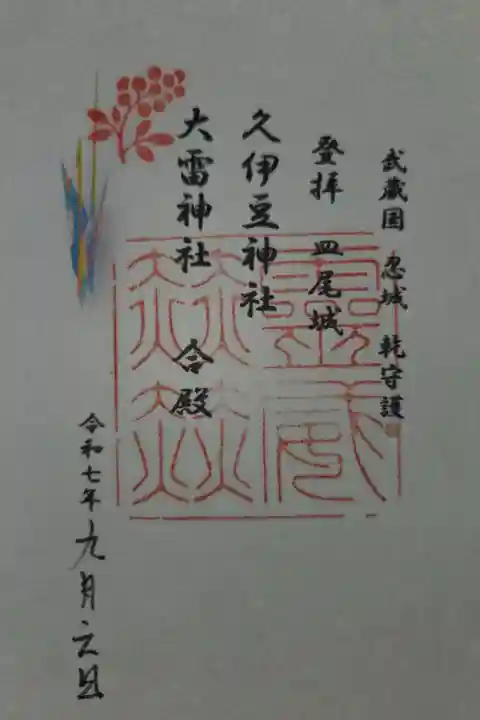 武蔵国 忍城 乾守護
登拝 皿尾城
久伊豆神社
大雷神社 合殿
令和七年九月元旦